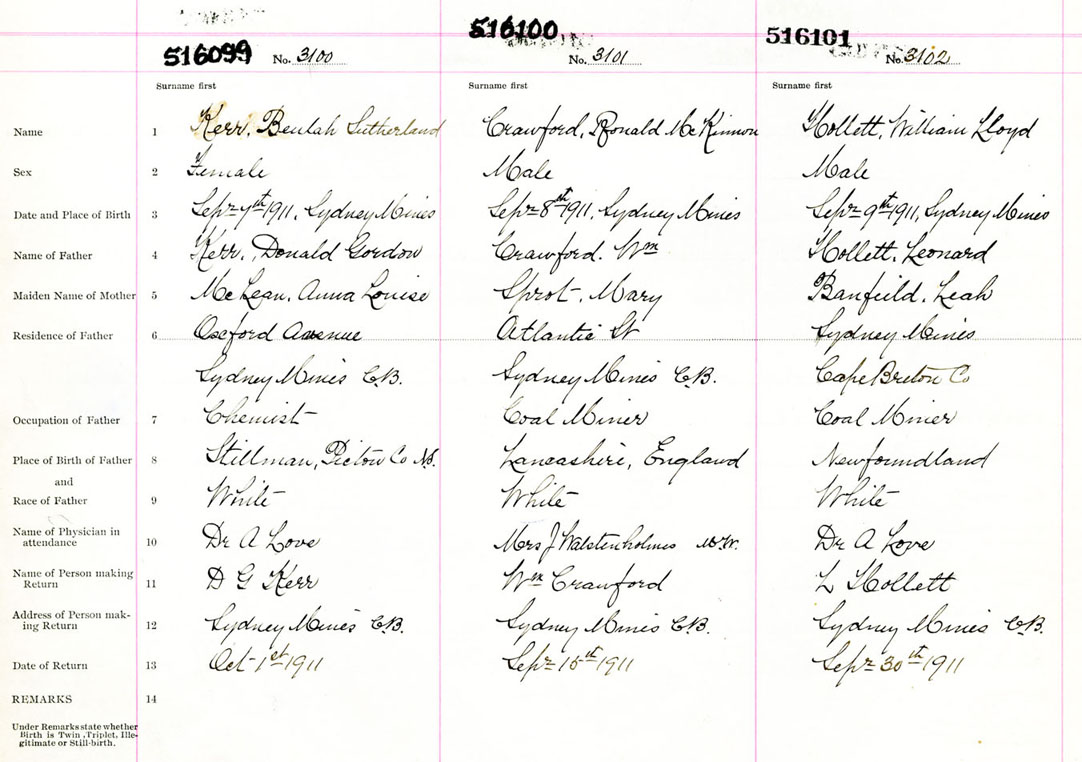 516099 No. 3100 516100 No. 3101 516101 No. 3102
Surname first Surname first Surname first
Name 1 Kerr, Beulah Sutherland Crawford, Ronald McKinnon Hollett, William Lloyd
Sex 2 Female Male Male
Date and Place of Birth 3 Sept 7th 1911, Sydney Mines Sept 8th 1911, Sydney Mines Sept 9th 1911, Sydney Mines
Name of Father 4 Kerr, Donald Gordon Crawford. Wm Hollett, Leonard
Maiden Name of Mother 5 McLean, Anna Louise Sprot, Mary Banfeild, Leah
Residence of Father 6 Oxford Avenue Atlantic St Sydney Mines
Sydney Mines C.B. Sydney Mines C.B. Cape Breton Co
Occupation of Father 7 Chemist Coal Miner Coal Miner
Place of Birth of Father 8 Stillman, Pictou Co N.S. Lancashire, England Newfoundland
and
Race of Father 9 White White White
Name of Physician in
attendance 10 Dr A Love Mrs J Walstenholmes Dr A Love
Name of Person making
Return 11 D G Kerr Wm Crawford L Hollett
Address of Person mak-
ing Return 12 Sydney Mines C.B. Sydney Mines C.B. Sydney Mines C.B.
Date of Return 13 Oct 1st 1911 Sept 15th 1911 Sept 30th 1911
REMARKS 14
Under Remarks state whether
Birth is Twin, Triplet, Ille-
gitimate or Still-birth.